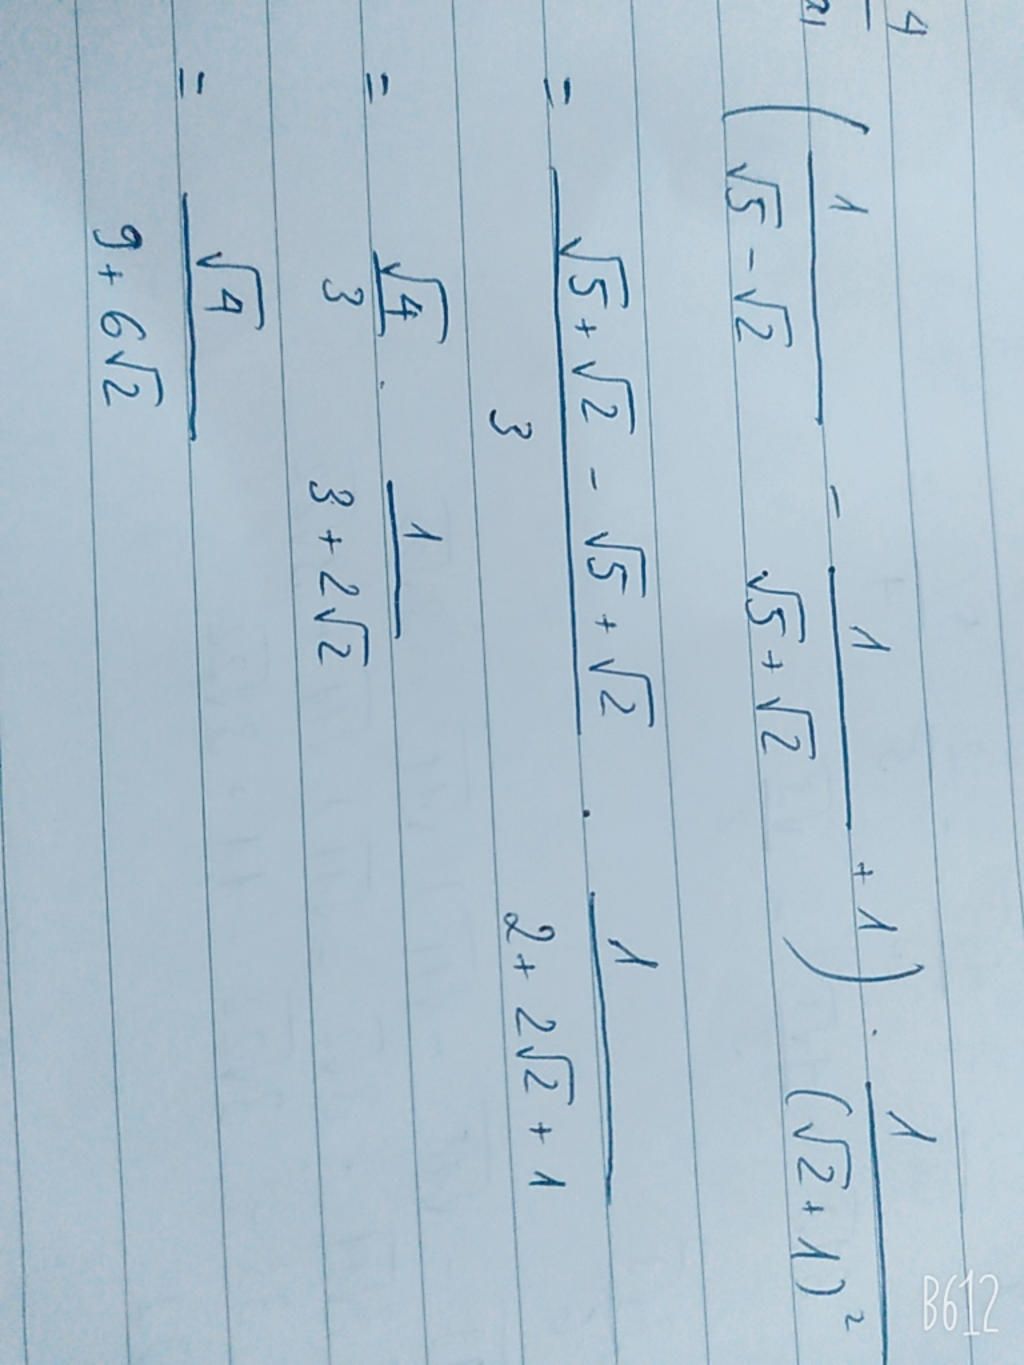 4
a)
( 1/(√5 - √2) - 1/(√5 + √2) + 1 ) . 1/(√2 + 1)²
= (√5 + √2 - √5 + √2)/3 . 1/(2 + 2√2 + 1)
= √4/3 . 1/(3 + 2√2)
= √4/(9 + 6√2)
B612